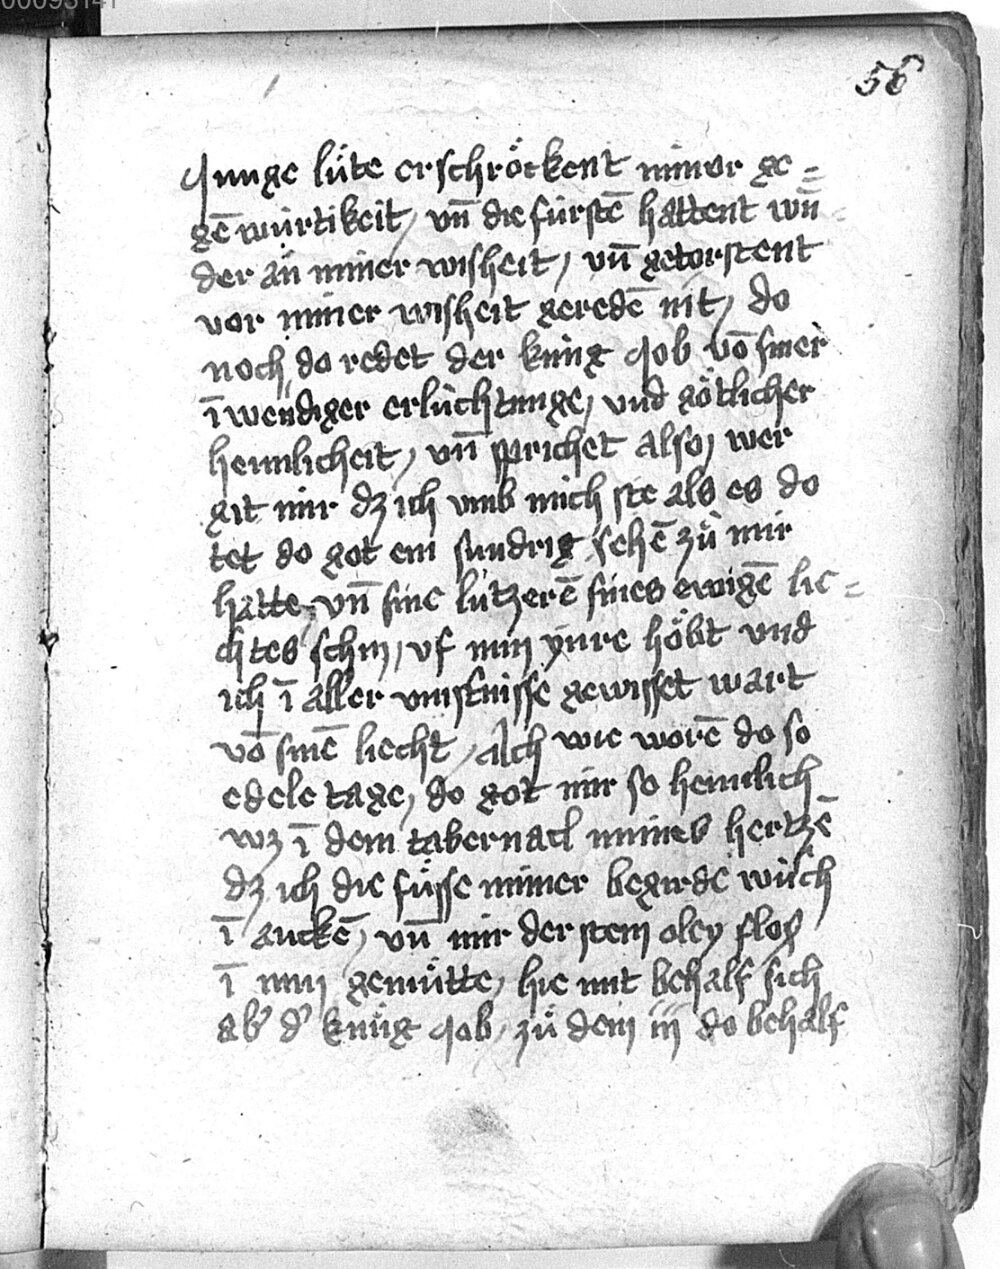 00095141
56
Junge lúte erschröckent miner ge=
gē wúrtikeit / vn̄ die fúrstē hattent wn̄
der an miner wisheit / vn̄ getorstent
vor miner wisheit geredē nit / do
noch do redet der kúnig Job vō siner
ī wendiger erlúchtunge / vnd götlicher
heimlicheit / vn̄ sprichet also / wer
git mir dz ich vmb mich ste als es do
tet do got ein sundrig sehē zů mir
hatte / vn̄ sine lutzerē sines ewigē lie=
chtes schin / vf min ynre höbt vnd
ich ī aller vinsternisse gewisset wart
vō sinē liecht / Ach wie worē do so
edele tage / do got mir so heimlich
wz ī dem tabernacl mines hertzē
dz ich die fůsse miner begirde wůsch
ī anckē / vn̄ mir der stein oley flos
ī min gemůtte / hie mit behalf sich
ab' d' kúnig Job / zů dem iij do behalf